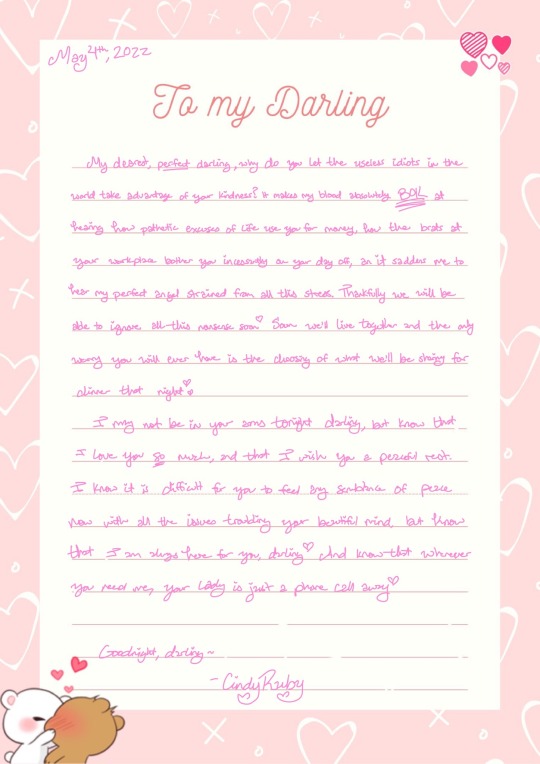 May 4th, 2022
To my Darling
My dearest, perfect darling, why do you let the useless idiots in the
world take advantage of your kindness? It makes my blood absolutely BOIL at
hearing how pathetic excuses of life use you for money, how the brats at
your workplace bother you incessantly on your day off, an it saddens me to
hear my perfect angel strained from all this stress. Thankfully we will be
able to ignore all this nonsense soon♡ Soon we'll live together and the only
worry you will ever have is the choosing of what we'll be having for
dinner that night♡
I may not be in your arms tonight darling, but know that
I love you so much, and that I wish you a peaceful rest.
I know it is difficult for you to feel any semblance of peace
now with all the issues troubling your beautiful mind, but know
that I am always here for you, darling♡ And know that whenever
you need me, your Lady is just a phone call away♡
Goodnight, darling ~
- CindyRuby